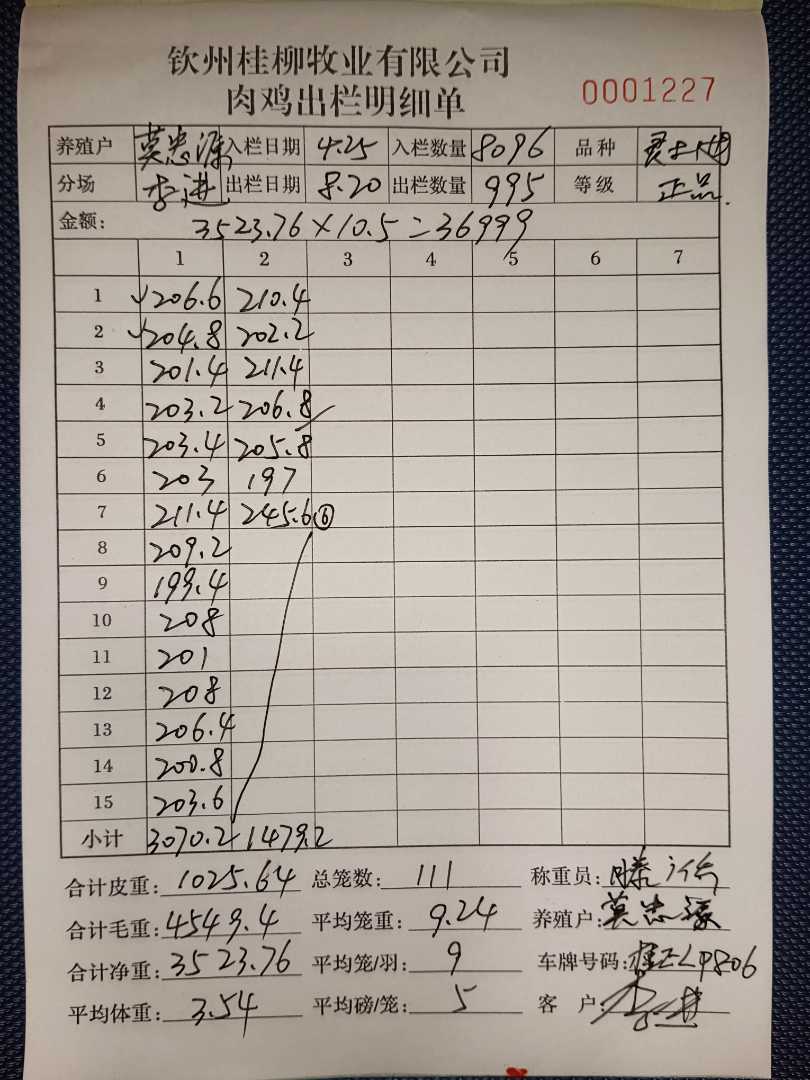 钦州桂柳牧业有限公司
肉鸡出栏明细单 0001227
养殖户 莫忠源 入栏日期 4.25 入栏数量 8096 品种
分场 李进 出栏日期 8.20 出栏数量 995 等级 正品.
金额: 3523.76×10.5=36999
1 2 3 4 5 6 7
1 206.6 210.4
2 204.8 202.2
3 201.4 211.4
4 203.2 206.8
5 203.4 205.8
6 203 197
7 211.4 245.6 ⑥
8 209.2
9 199.4
10 208
11 201
12 208
13 206.4
14 200.8
15 203.6
小计 3070.2 1479.2
合计皮重: 1025.64 总笼数: 111 称重员:
合计毛重: 4549.4 平均笼重: 9.24 养殖户: 莫忠源
合计净重: 3523.76 平均笼/羽: 9 车牌号码:
平均体重: 3.54 平均磅/笼: 5 客户: 李进